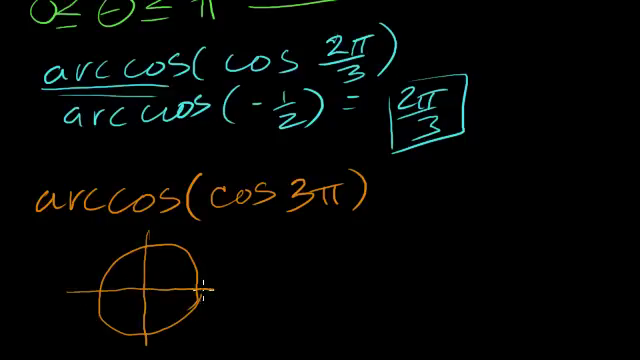 0 ≤ θ ≤ π
arccos(cos 2π/3)
arccos(-1/2) = 2π/3
arccos(cos 3π)